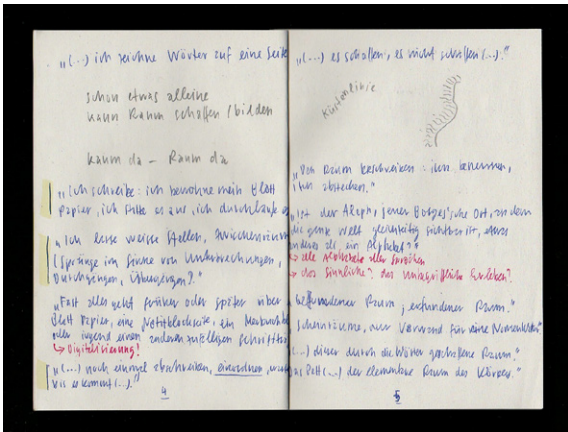 „(...) ich zeichne Wörter auf eine Seite
schon etwas alleine
kann Raum schaffen / bilden
kaum da – Raum da
„Ich schreibe: ich bewohne mein Blatt
Papier, ich statte es aus, ich durchlaufe es
„Ich lasse weiße Stellen, Zwischenräume
(Sprünge im Sinne von Unterbrechungen,
Durchgängen, Übergängen)."
„Fast alles geht früher oder später über
Blatt Papier, eine Notizblockseite, ein
oder irgend einen anderen zufälligen
↳ Digitalisierung!
„(...) noch einmal abschreiben, einordnen,
bis es kommt (...)."
4
„(...) es schaffen, es nicht schaffen (...)."
Küstenlinie
„Den Raum beschreiben: ihn benennen,
ihn abstecken."
„Ist der Aleph, jener Borges'sche Ort, an dem
die ganze Welt gleichzeitig sichtbar ist, etwas
anderes als ein Alphabet?"
↳ alle Alphabete aller Sprachen
↳ das Sinnliche? das unbegriffliche Erleben?
Raum, erfundener Raum."
nur Vorwand für eine
(...) dieser durch die Wörter geschaffene Raum."
Das Bett (...) der elementare Raum des Körpers."
5